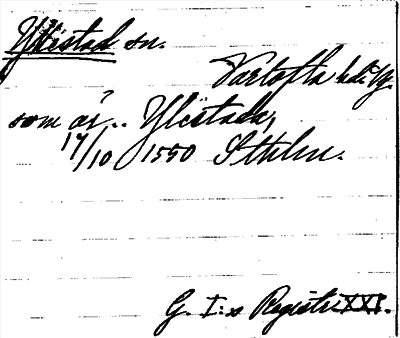 Yllestad sn.
Vartofta hd. Vg.
som är.. Ylestada,
17/10 1550 Sthlm.
G. I:s Registr. XXI.